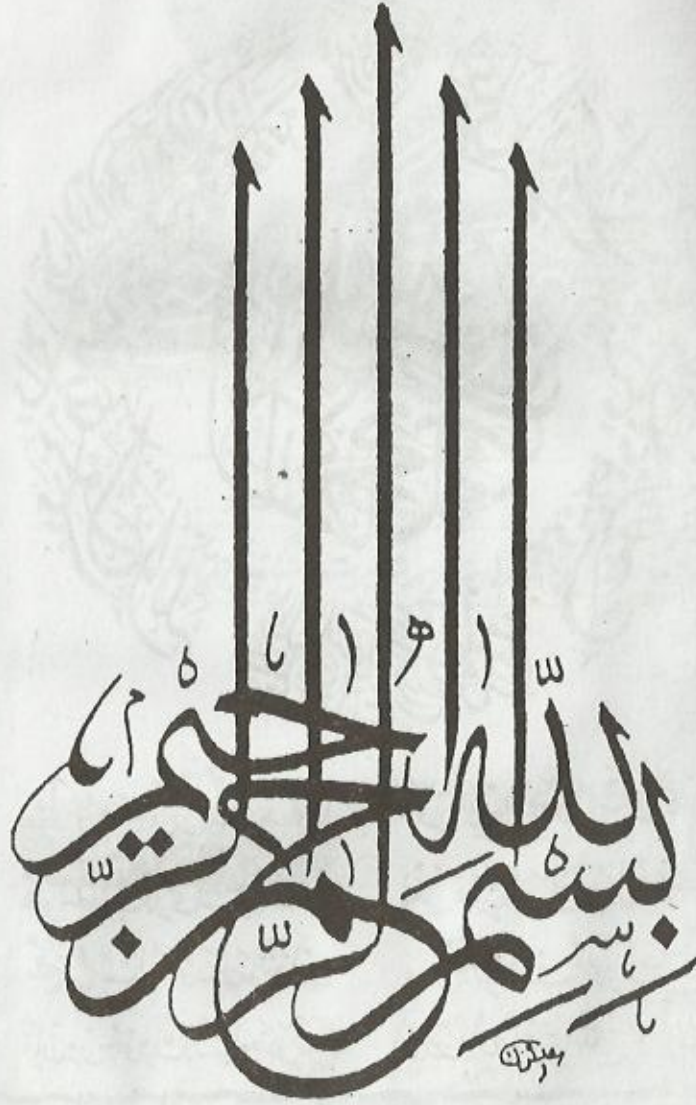 بِسْمِ اللّٰه الرّحْمٰن الرّحيْم